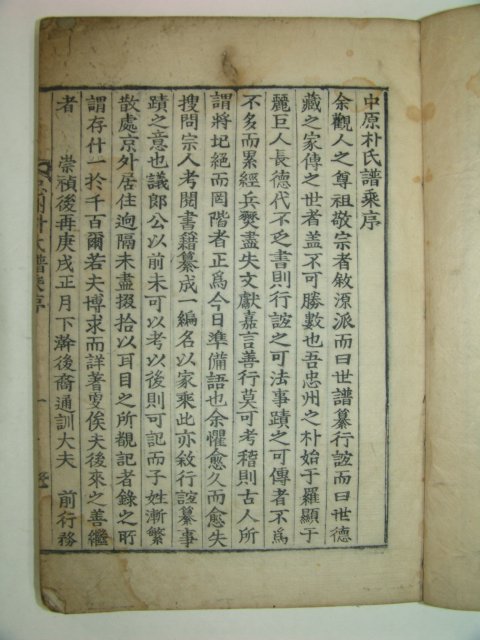 中原朴氏譜乘序
余觀人之尊祖敬宗者敘源派而曰世譜纂行誼而曰世德
藏之家傳之世者盖不可勝數也吾忠州之朴始于羅顯于
麗巨人長德代不乏書則行誼之可法事蹟之可傳者不爲
不多而累經兵燹盡失文獻嘉言善行莫可考稽則古人所
謂將圮絕而罔階者正爲今日準備語也余懼愈久而愈失
搜問宗人考閱書籍纂成一編名以家乘此亦敘行誼纂事
蹟之意也議郎公以前未可以考以後則可記而子姓漸繁
散處京外居住逈隔未盡掇拾以耳目之所覩記者錄之所
謂存什一於千百爾若夫博求而詳著叟俟夫後來之善繼
者　崇禎後再庚戌正月下澣後裔通訓大夫　前行務
忠州朴氏譜乘序
一